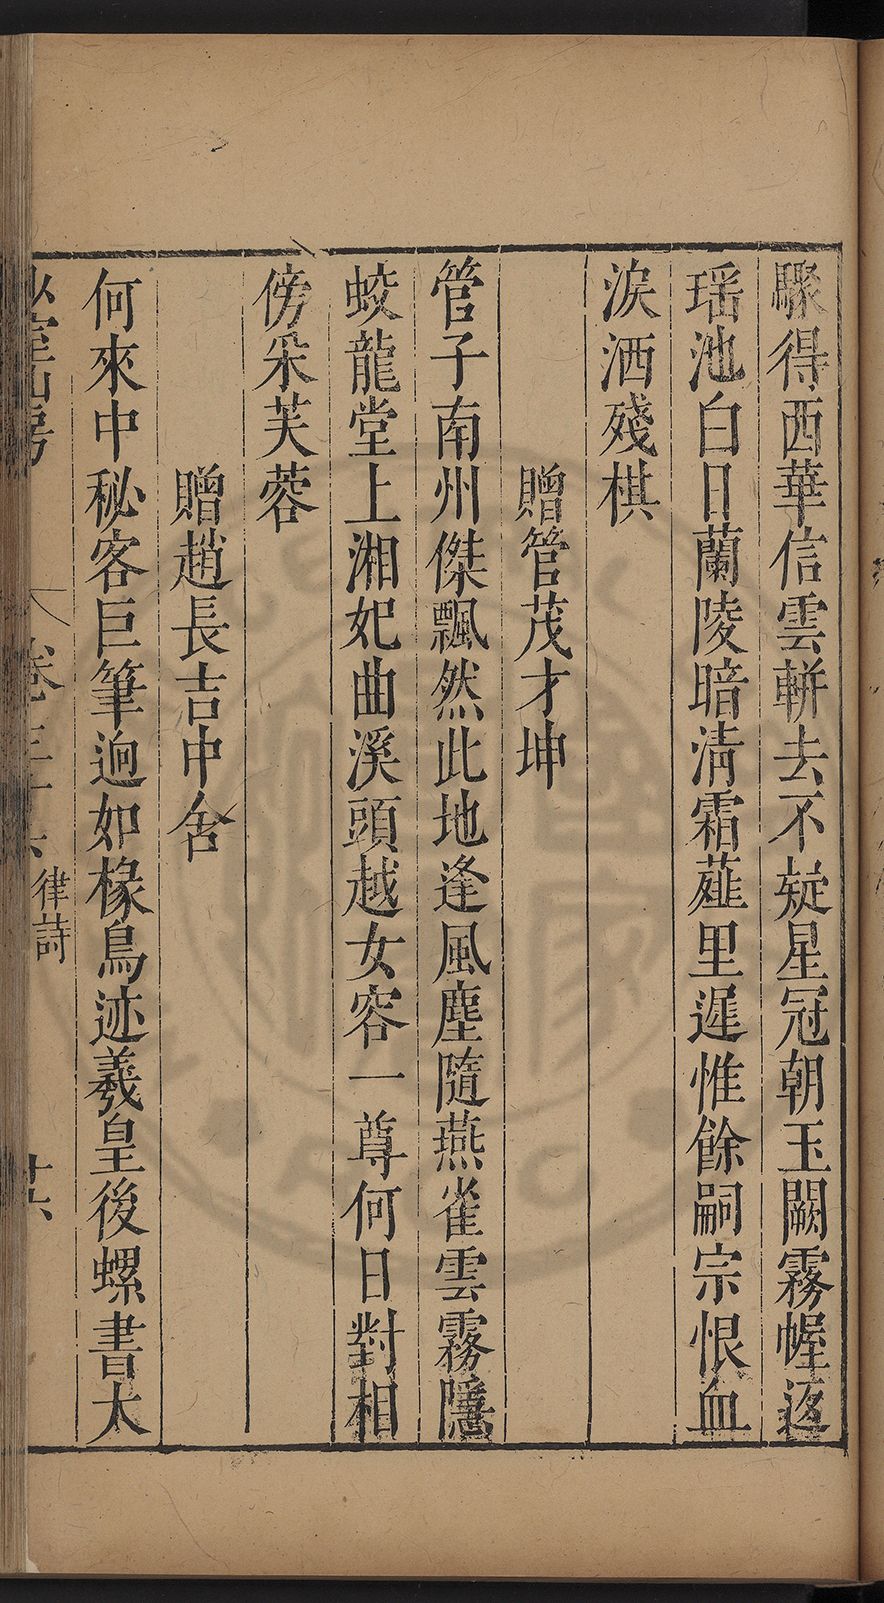 驟得西華信雲輧去不疑星冠朝玉闕霧幄返
瑶池白日蘭陵暗淸霜薤里遲惟餘嗣宗恨血
淚洒殘棋
贈管茂才坤
管子南州傑飄然此地逢風塵隨燕雀雲霧隱
蛟龍堂上湘妃曲溪頭越女容一尊何日對相
傍采芙蓉
贈趙長吉中舍
何來中秘客巨筆逈如椽鳥迹羲皇後螺書太
山房
卷三十六 律詩
廿六